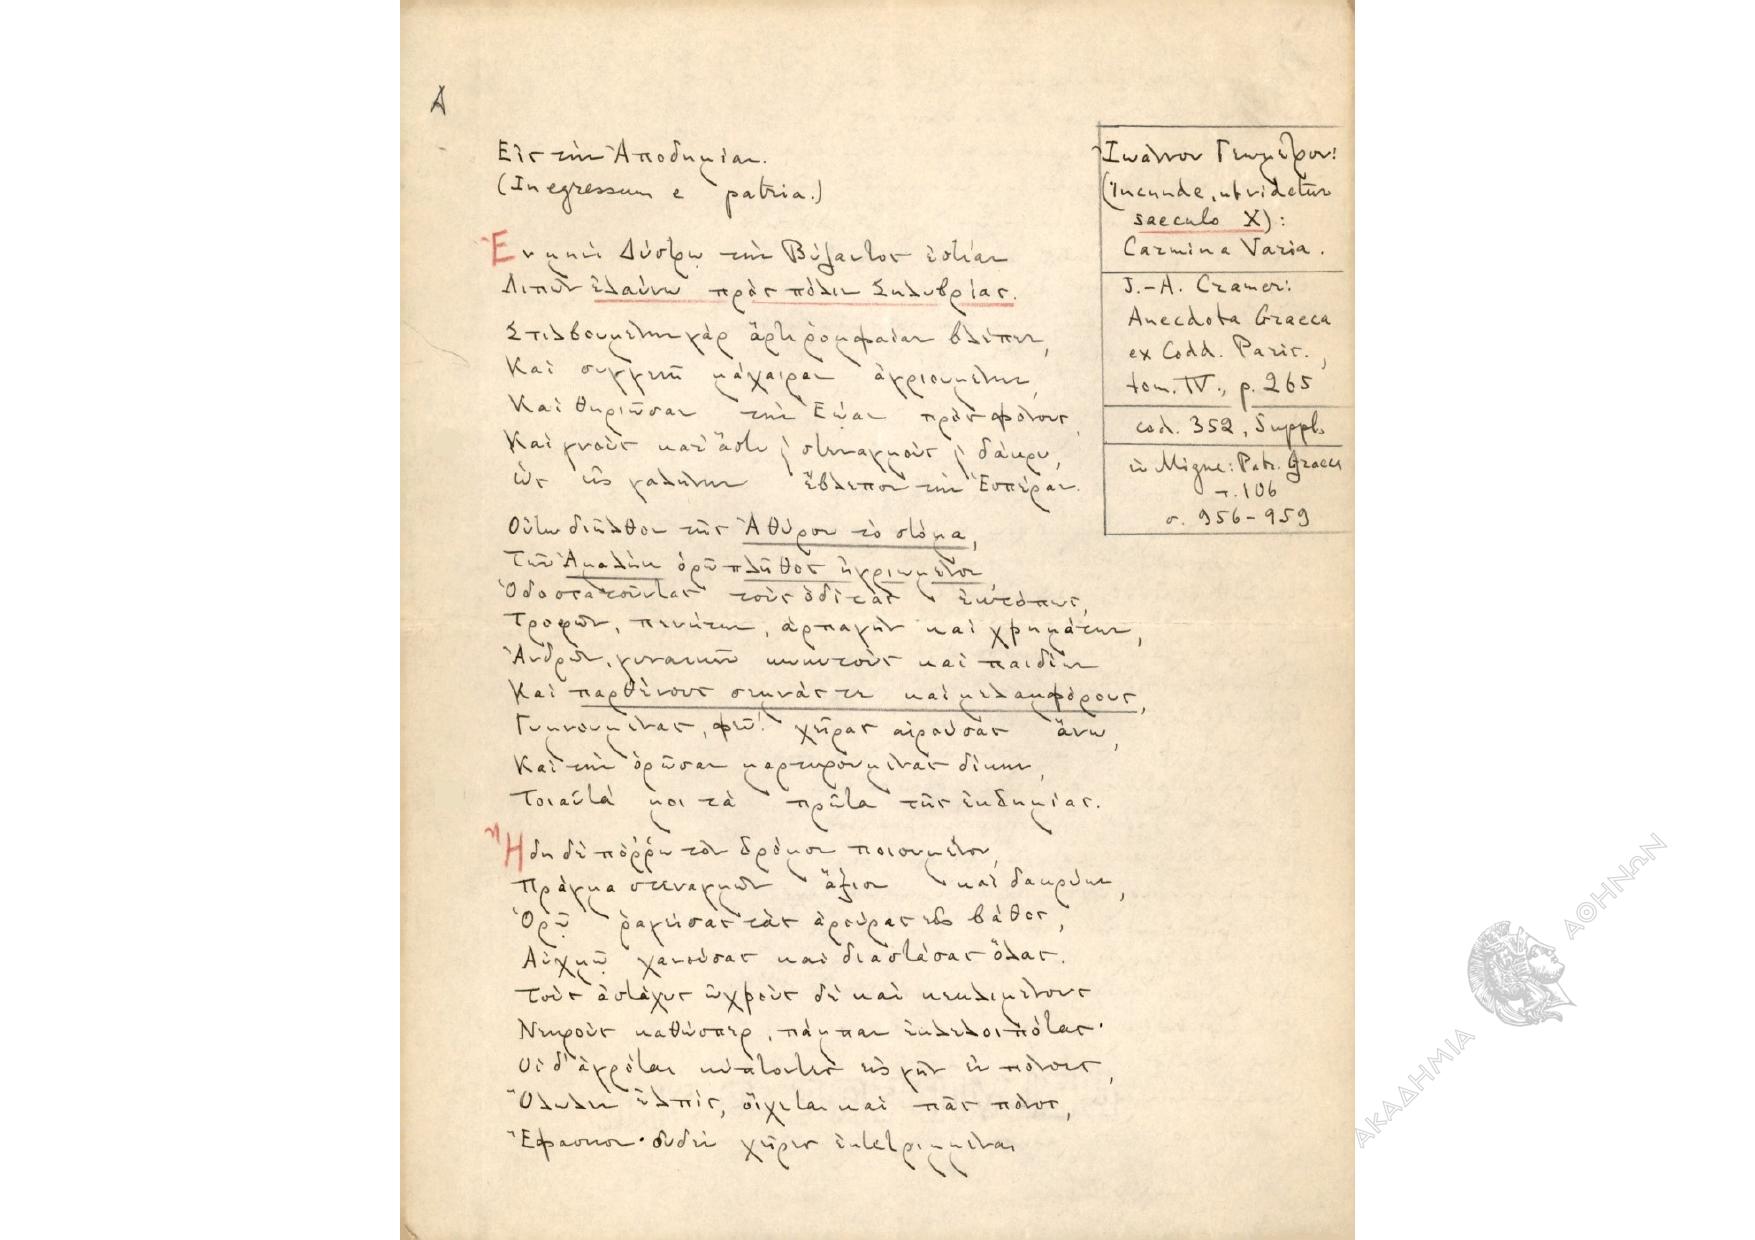 A
Εἰς τὴν Ἀποδημίαν.
(In egressum e patria.)
Ἐν μηνὶ Δύστρῳ τὴν Βύζαντος ἑστίαν
Λιπὼν ἐλαύνω πρὸς πόλιν Σηλυβρίας.
Στιλβουμένην γὰρ ἄρτι ῥομφαίαν βλέπων,
Καὶ συγγενῆ μάχαιραν ἀγριουμένην,
Καὶ θηριῶσαν τὴν Ἑῴαν πρὸς φόνους,
Καὶ γνοὺς κατ' ἄστυ στεναγμοὺς δάκρυ,
Ὡς εἰς γαλήνην ἔβλεπον τὴν Ἑσπέραν.
Οὔπω διῆλθον τῆς Ἀθύρου τὸ στόμα,
Τῶν Ἀμαλὴκ ὁρῶ πλῆθος ἠγριωμένον
Ὁδοστατοῦντας τοὺς ὁδίτας ἐκτόπως,
Τροφῶν, πενήτων, ἁρπαγὴν καὶ χρημάτων,
Ἀνδρῶν, γυναικῶν κωκυτοὺς καὶ παιδίων
Καὶ παρθένους σεμνάς τε καὶ μελαμφόρους,
Γυμνουμένας, φεῦ! χεῖρας αἰρούσας ἄνω,
Καὶ τὴν ὁρῶσαν μαρτυρουμένας δίκην,
Τοιαῦτά μοι τὰ πρῶτα τῆς ἐκδημίας.
Ἤδη δὲ πόῤῥω τὸν δρόμον ποιουμένου,
Πρᾶγμα στεναγμῶν ἄξιον καὶ δακρύων,
Ὁρῶ ῥαγείσας τὰς ἀρούρας εἰς βάθος,
Αὐχμῷ χανούσας καὶ διαστάσας ὅλας.
Τοὺς ἀστάχυς ὠχροὺς δὲ καὶ κεκλιμένους
Νεκροὺς καθώσπερ, πάμπαν ἐκλελοιπότας·
Οἱ δ' ἀγρόται κύπτοντες εἰς γῆν ἐν πόνοις,
Ὄλωλεν ἐλπίς, οἴχεται καὶ πᾶς πόνος,
Ἔφασκον· οὐδὲν χεῖρες ἐκτετριμμέναι
Ἰωάννου Γεωμέτρου:
(Incunde, ut videtur
saeculo X):
Carmina Varia.
J.-A. Cramer:
Anecdota Graeca
ex Codd. Paris.,
tom. IV., p. 265
cod. 352, Suppl.
ἐν Migne: Patr. Graeca
τ. 106
σ. 956-959
ΑΚΑΔΗΜΙΑ ΑΘΗΝΩΝ